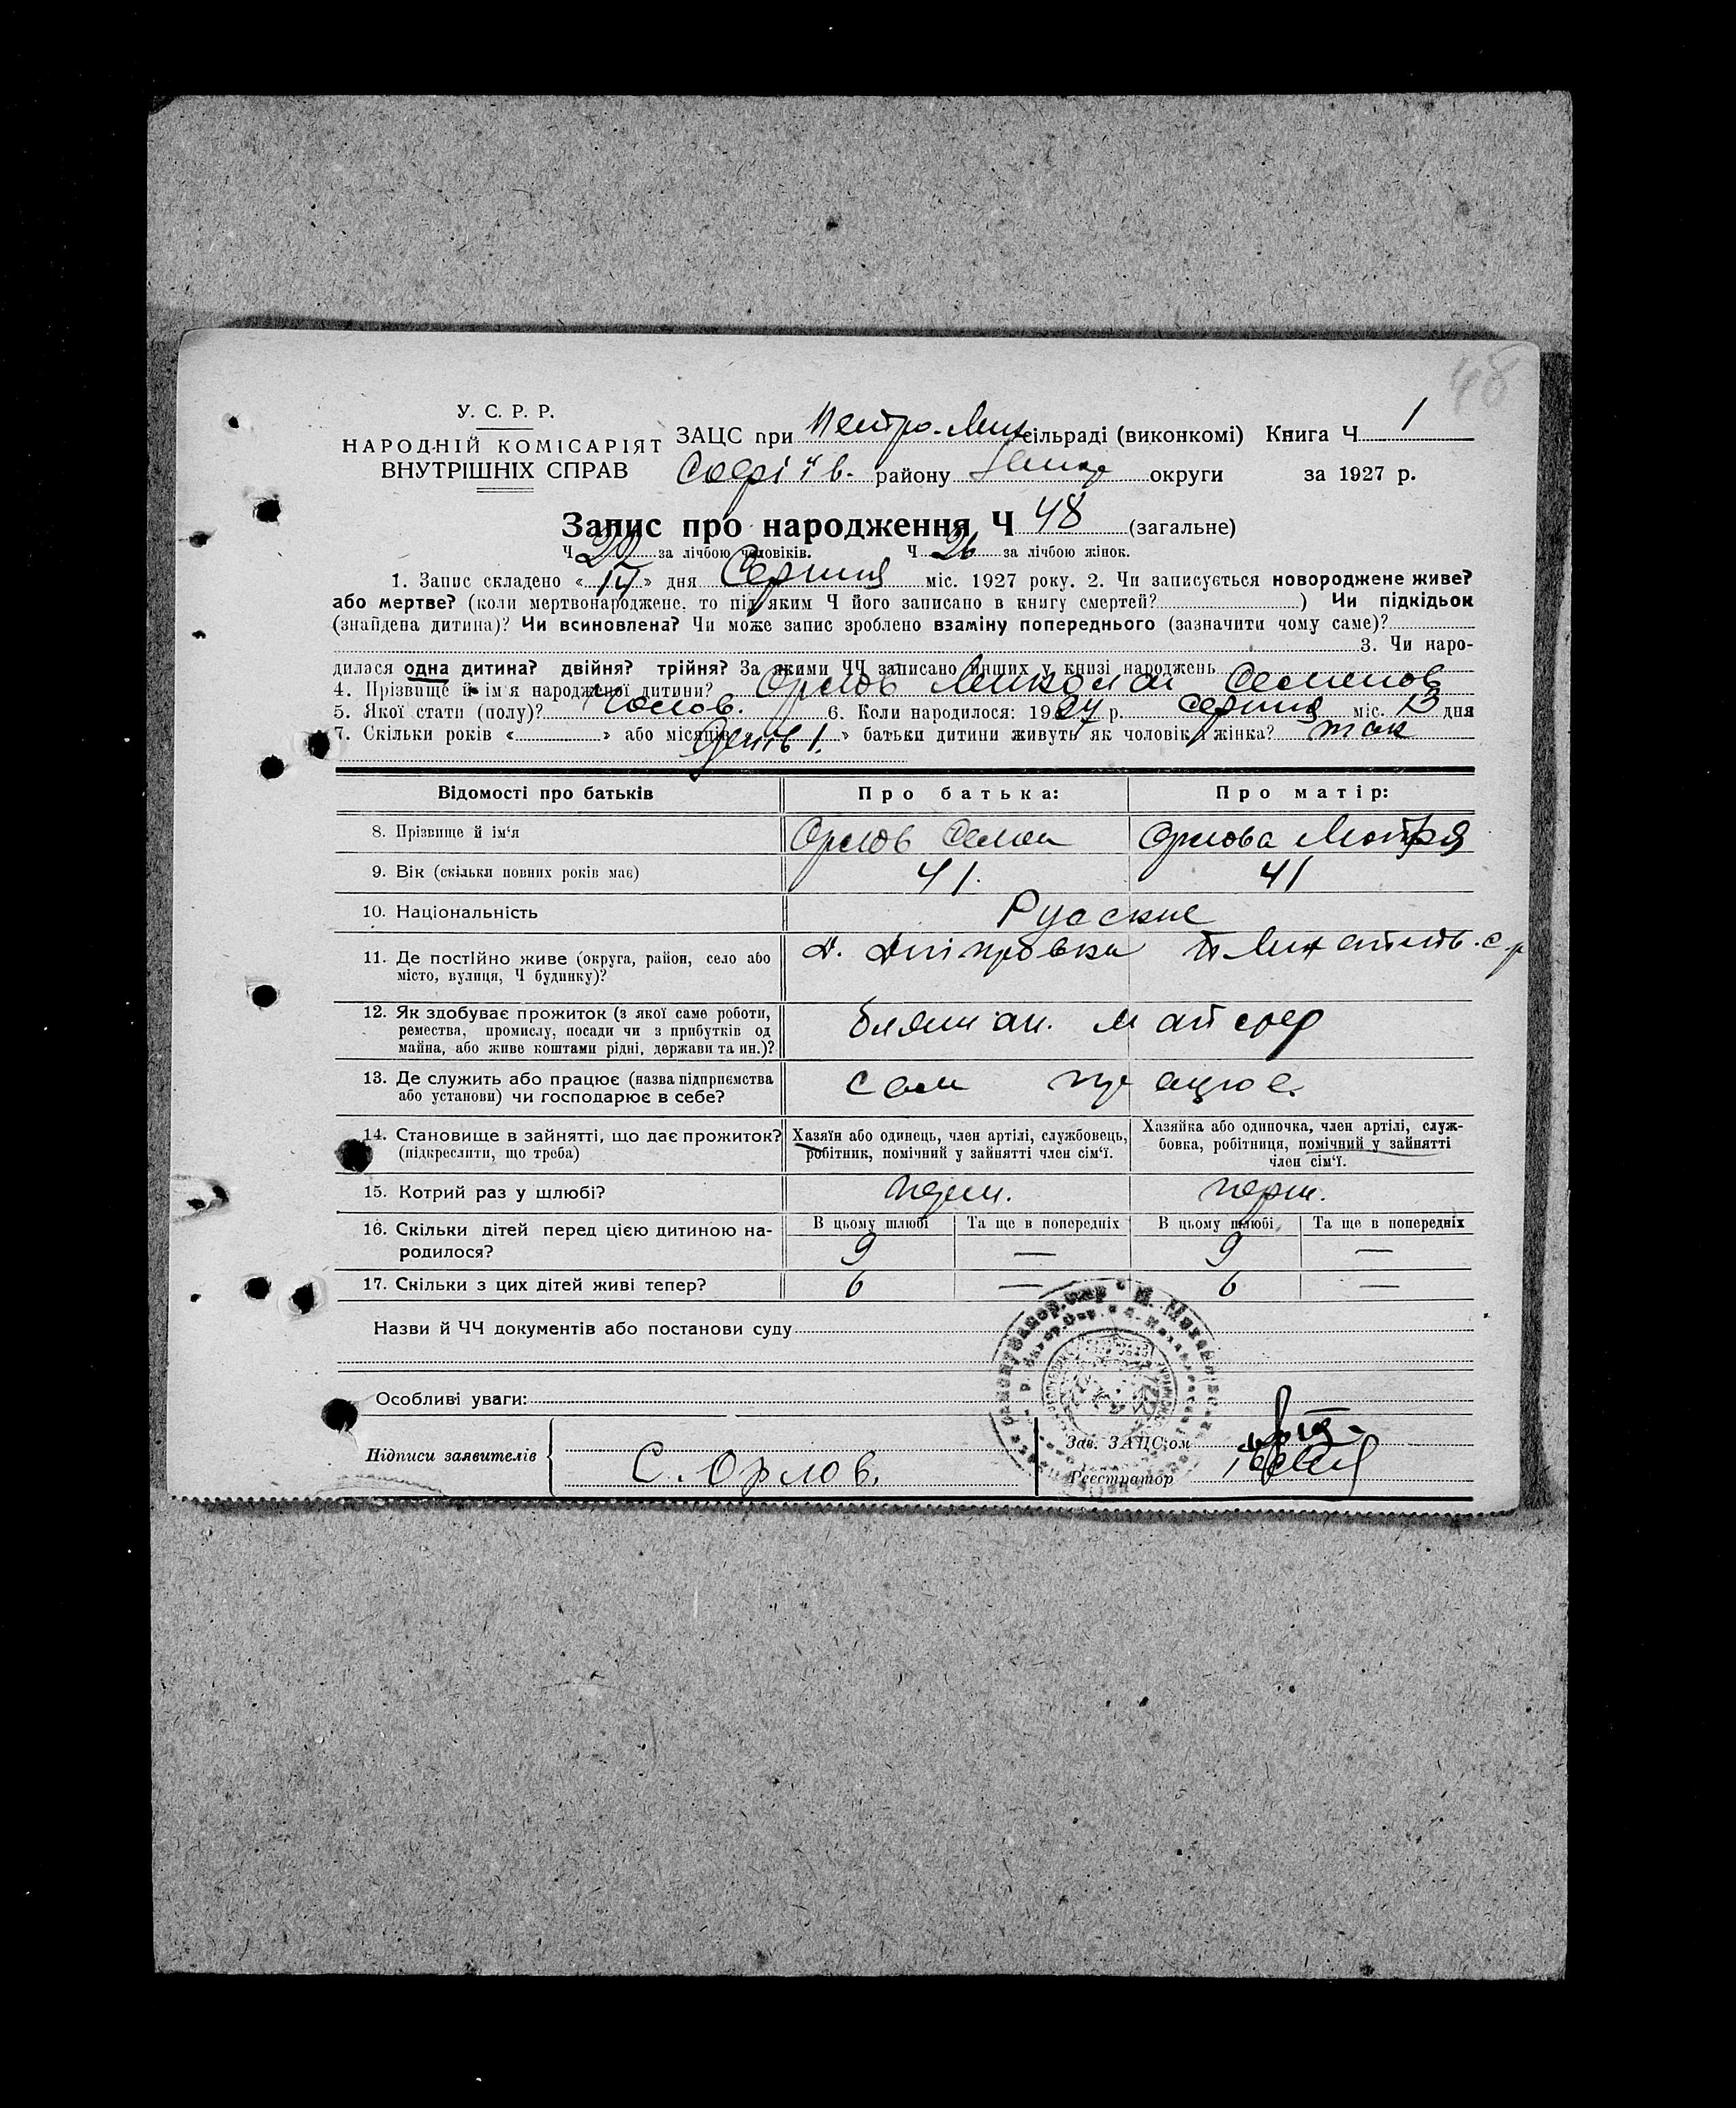 48
У. С. Р. Р.
НАРОДНІЙ КОМІСАРІЯТ
ВНУТРІШНІХ СПРАВ
ЗАЦС при Петро-Мих сільраді (виконкомі) Книга Ч 1
Софіїв. району округи за 1927 р.
Запис про народження Ч 48 (загальне)
Ч 22 за лічбою чоловіків. Ч 26 за лічбою жінок.
1. Запис складено « 14 » дня Серпня міс. 1927 року. 2. Чи записується новороджене живе?
або мертве? (коли мертвонароджене, то під яким Ч його записано в книгу смертей? ) Чи підкідьок
(знайдена дитина)? Чи всиновлена? Чи може запис зроблено взаміну попереднього (зазначити чому саме)?
3. Чи наро-
дилася одна дитина? двійня? трійня? За якими ЧЧ записано инших у книзі народжень
4. Прізвище й ім'я народженої дитини? Орлов Миколай Семенов
5. Якої стати (полу)? Чолов. 6. Коли народилося: 1927 р. Серпня міс. 13 дня
7. Скільки років « » або місяців » батьки дитини живуть як чоловік і жінка? так
Відомості про батьків Про батька: Про матір:
8. Прізвище й ім'я Орлов Семен Орлова Мотря
9. Вік (скільки повних років має) 41. 41
10. Національність Русские
11. Де постійно живе (округа, район, село або Д. Дніпровка с.р
місто, вулиця, Ч будинку)?
12. Як здобуває прожиток (з якої саме роботи,
ремества, промислу, посади чи з прибутків од
майна, або живе коштами рідні, держави та ин.)? майстер
13. Де служить або працює (назва підприємства
або установи) чи господарює в себе? сам працює.
14. Становище в зайнятті, що дає прожиток?
(підкреслити, що треба)
Хазяїн або одинець, член артілі, службовець,
робітник, помічний у зайнятті член сім'ї.
Хазяйка або одиночка, член артілі, служ-
бовка, робітниця, помічний у зайнятті
член сім'ї.
15. Котрий раз у шлюбі? перш. перш.
16. Скільки дітей перед цією дитиною на-
родилося?
В цьому шлюбі Та ще в попередніх В цьому шлюбі Та ще в попередніх
9 — 9 —
17. Скільки з цих дітей живі тепер? 6 — 6 —
Назви й ЧЧ документів або постанови суду
Особливі уваги:
Підписи заявителів С. Орлов.
Зав. ЗАЦС'ом
Реєстратор